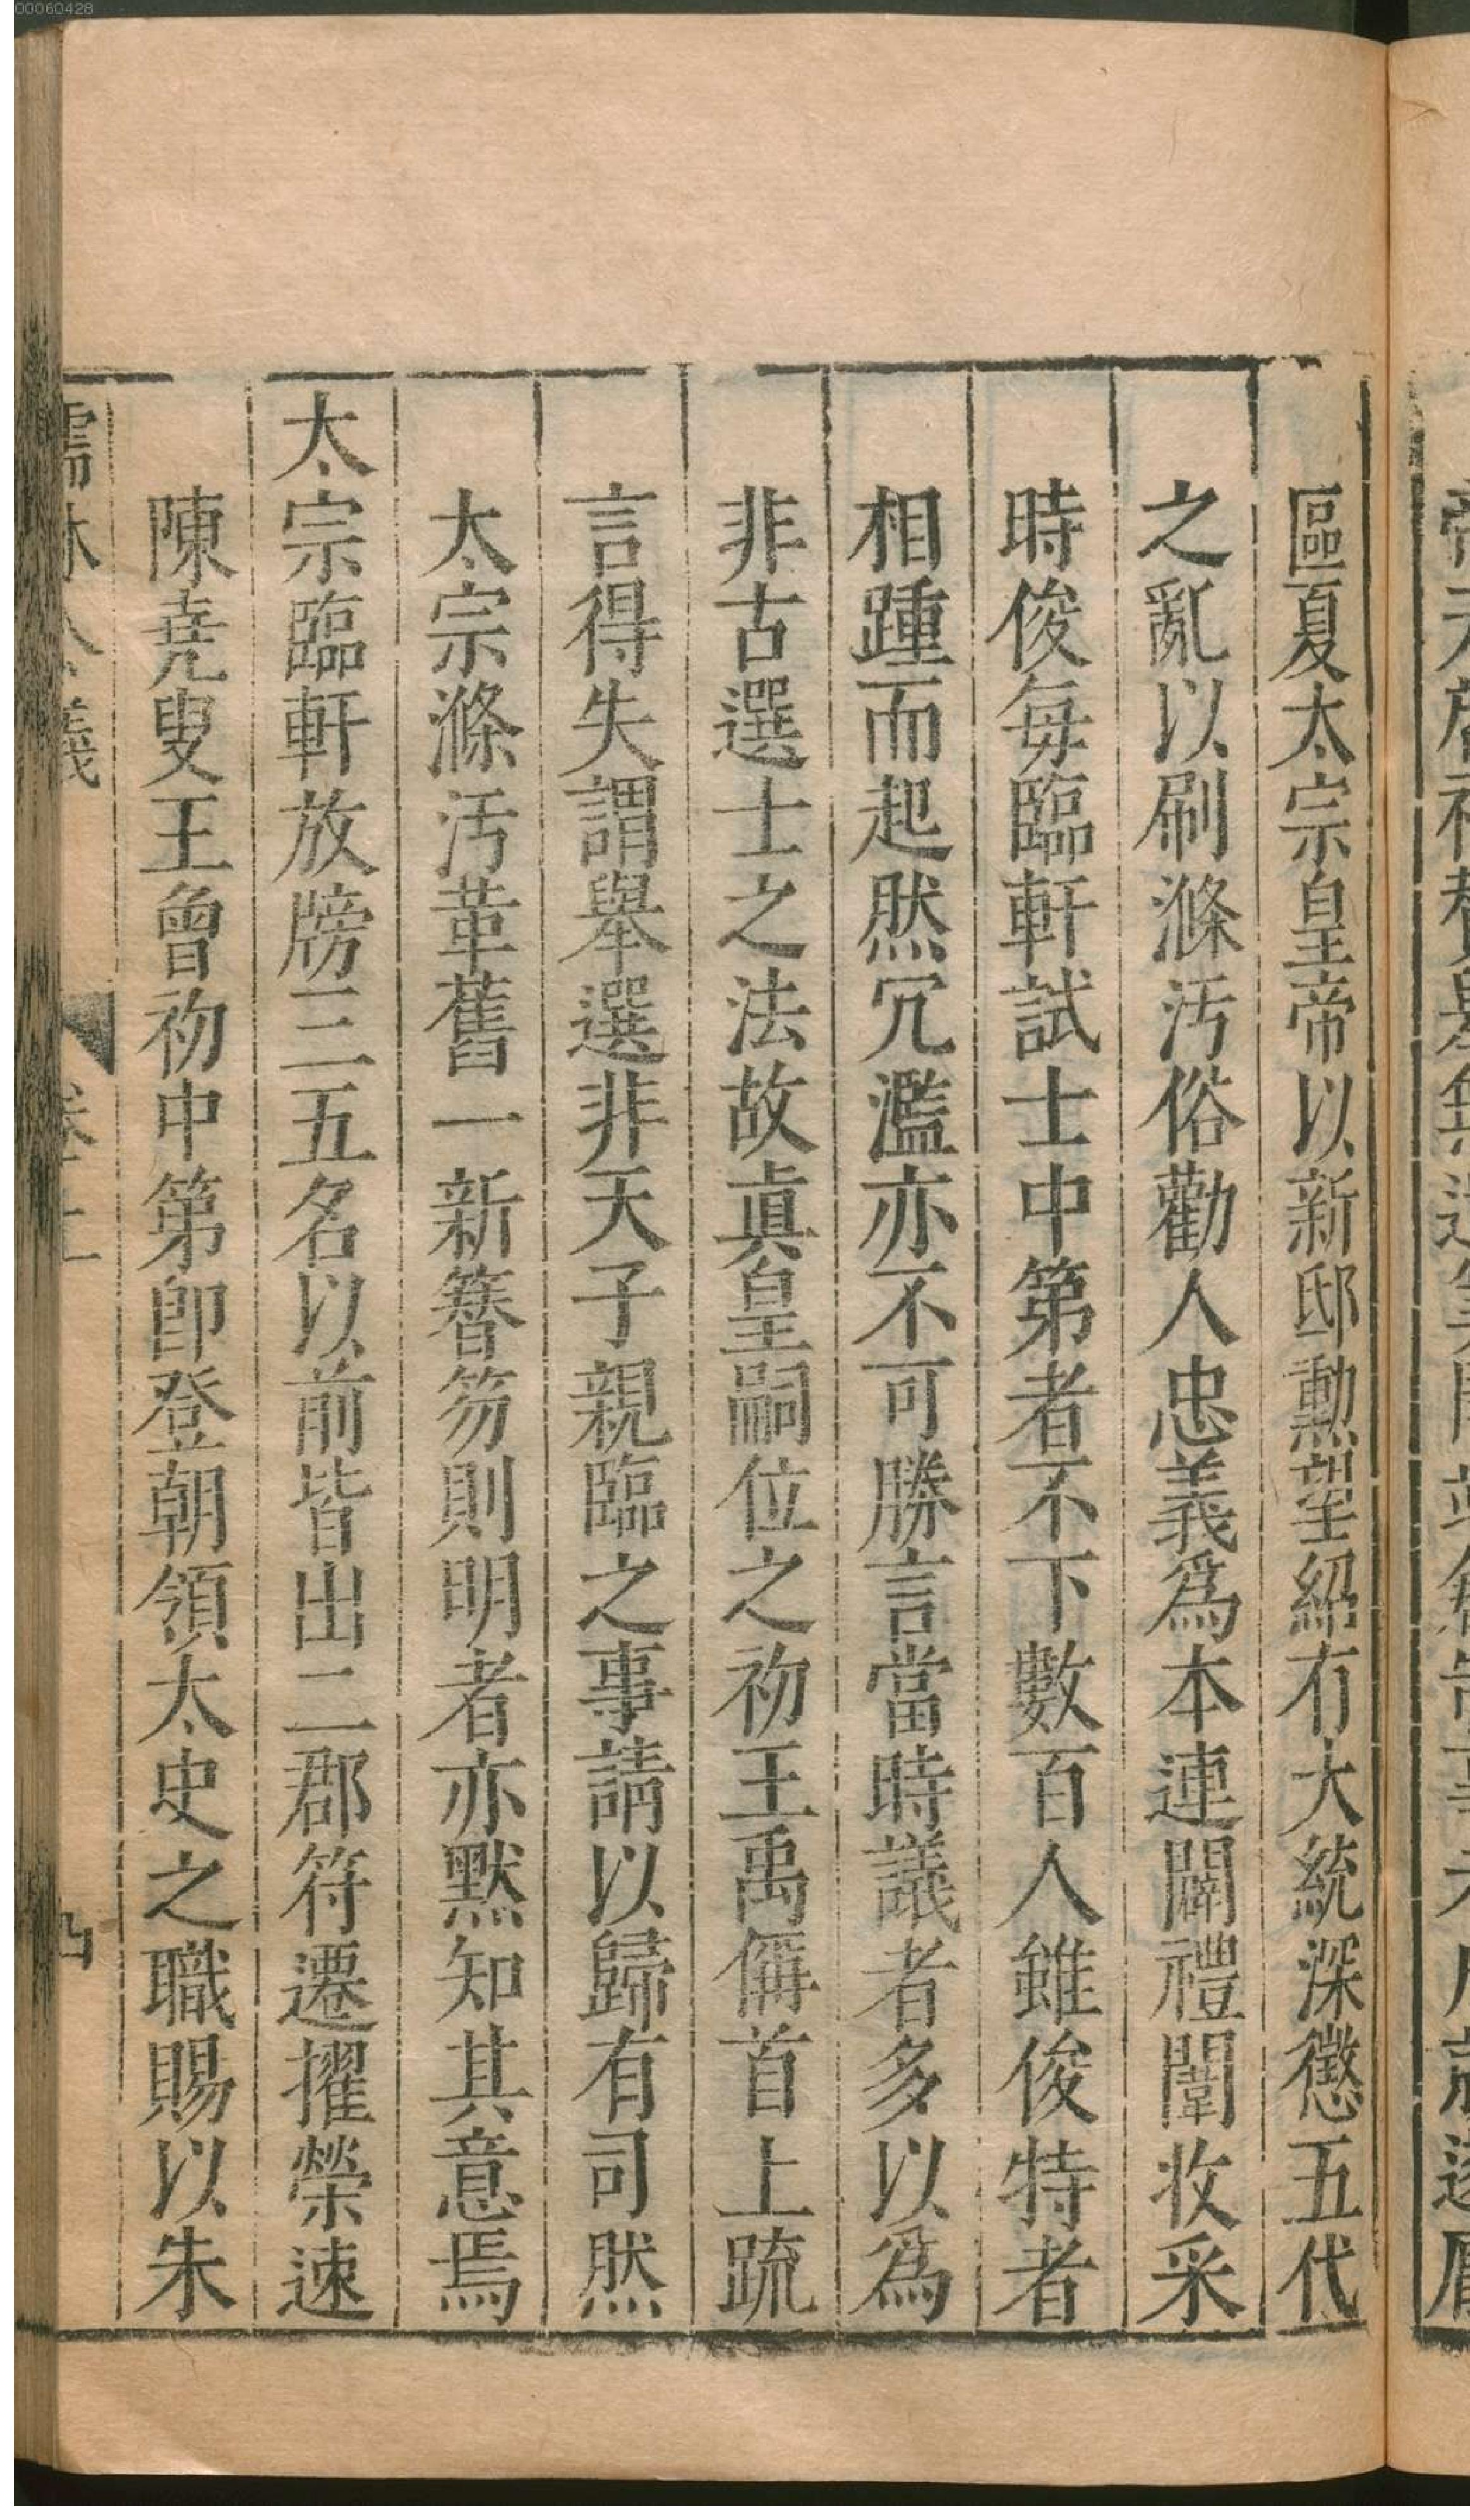 區夏太宗皇帝以新邸勲望紹有大統深懲五代
之亂以刷滌汚俗勸人忠義爲本連闢禮闈收采
時俊每臨軒試士中第者不下數百人雖俊特者
相踵而起然冗濫亦不可勝言當時議者多以爲
非古選士之法故眞皇嗣位之初王禹偁首上疏
言得失謂舉選非天子親臨之事請以歸有司然
太宗滌汚革舊一新簪笏則明者亦默知其意焉
太宗臨軒放牓三五名以前皆出二郡符遷擢榮速
陳堯叟王曾初中第卽登朝領太史之職賜以朱
儒林公議
卷上
四
00060428